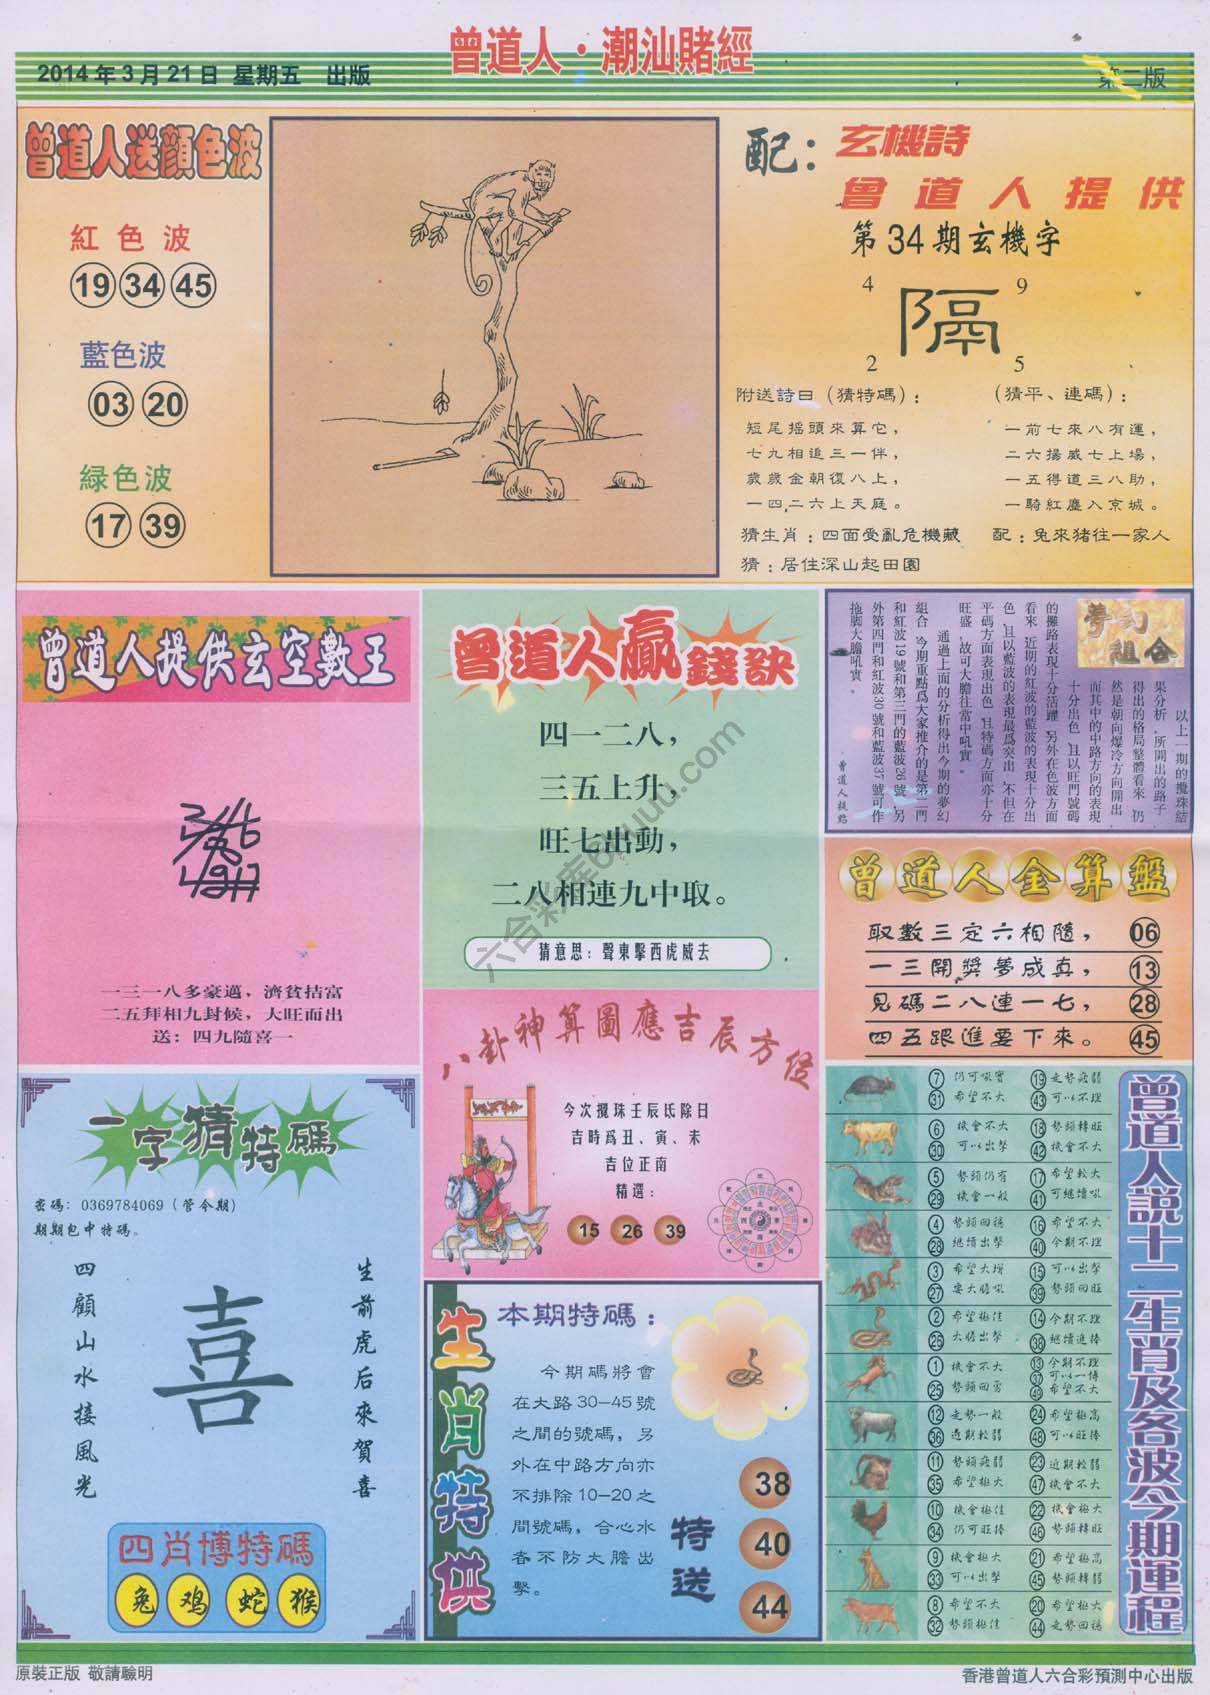 曾道人·潮汕賭經
2014年3月21日 星期五 出版
第二版
曾道人送顔色波
紅色波
19 34 45
藍色波
03 20
緑色波
17 39
配：
玄機詩
曾道人提供
第34期玄機字
4 9
隔
2 5
附送詩曰（猜特碼）：
短尾摇頭來算它，
七九相追三一伴，
歲歲金朝復八上，
一四二六上天庭。
（猜平、連碼）：
一前七來八有運，
二六揚威七上場，
一五得道三八助，
一騎紅塵入京城。
猜生肖：四面受亂危機藏
配：兔來猪往一家人
猜：居住深山起田園
曾道人提供玄空數王
一三一八多豪邁，濟貧拮富
二五拜相九封候，大旺而出
送：四九隨喜一
曾道人贏錢訣
四一二八，
三五上升，
旺七出動，
二八相連九中取。
猜意思：聲東擊西虎威去
夢幻組合
以上一期的攪珠結
果分析，所開出的路子，
得出的格局整體看來，仍
然是朝向爆冷方向開出，
而其中的中路方向的表現
十分出色，且以旺門號碼
的攤路表現十分活躍，另外在色波方面
看來，近期的紅波的藍波的表現十分出
色，且以藍波的表現最爲突出，不但在
平碼方面表現出色，且特碼方面亦十分
旺盛，故可大膽往當中吼實。
通過上面的分析得出今期的夢幻
組合，今期重點爲大家推介的是第二門
和紅波19號和第三門的藍波26號，另
外第四門和紅波30號和藍波37號可作
拖脚大膽吼實。
曾道人提點
曾道人金算盤
取數三定六相隨， 06
一三開獎夢成真， 13
見碼二八連一七， 28
四五跟進要下來。 45
八卦神算圖應吉辰方位
今次攪珠壬辰氐除日
吉時爲丑、寅、未
吉位正南
精選：
15 26 39
一字猜特碼
密碼：0369784069（管今期）
期期包中特碼。
四顧山水接風光
喜
生前虎后來賀喜
四肖博特碼
兔 鸡 蛇 猴
生肖特供
本期特碼：
今期碼將會
在大路30-45號
之間的號碼，另
外在中路方向亦
不排除10-20之
間號碼，合心水
者不防大膽出
擊。
特送
38
40
44
曾道人説十二生肖及各波今期運程
7 仍可吼實 19 走勢疲弱
31 希望不大 43 可以不理
6 機會不大 18 勢頭轉旺
30 可以出擊 42 機會不大
5 勢頭仍有 17 希望較大
29 機會一般 41 可繼續吼
4 勢頭回穩 16 希望不大
28 繼續出擊 40 今期不理
3 希望大增 15 可以出擊
27 要大膽吼 39 勢頭回旺
2 希望極佳 14 今期不理
26 大膽出擊 38 繼續追捧
1 機會不大 13 今期不理
37 可以一博
25 勢頭回勇 49 希望不大
12 走勢一般 24 希望極高
36 近期較弱 48 可以旺捧
11 勢頭疲弱 23 近期較弱
35 希望極大 47 機會不大
10 機會極佳 22 機會極大
34 仍可旺捧 46 勢頭轉旺
9 機會極大 21 希望極高
33 可以出擊 45 勢頭轉弱
8 希望不大 20 希望極大
32 勢頭極佳 44 走勢回穩
原裝正版 敬請驗明
香港曾道人六合彩預測中心出版
六合彩库6huuu.com